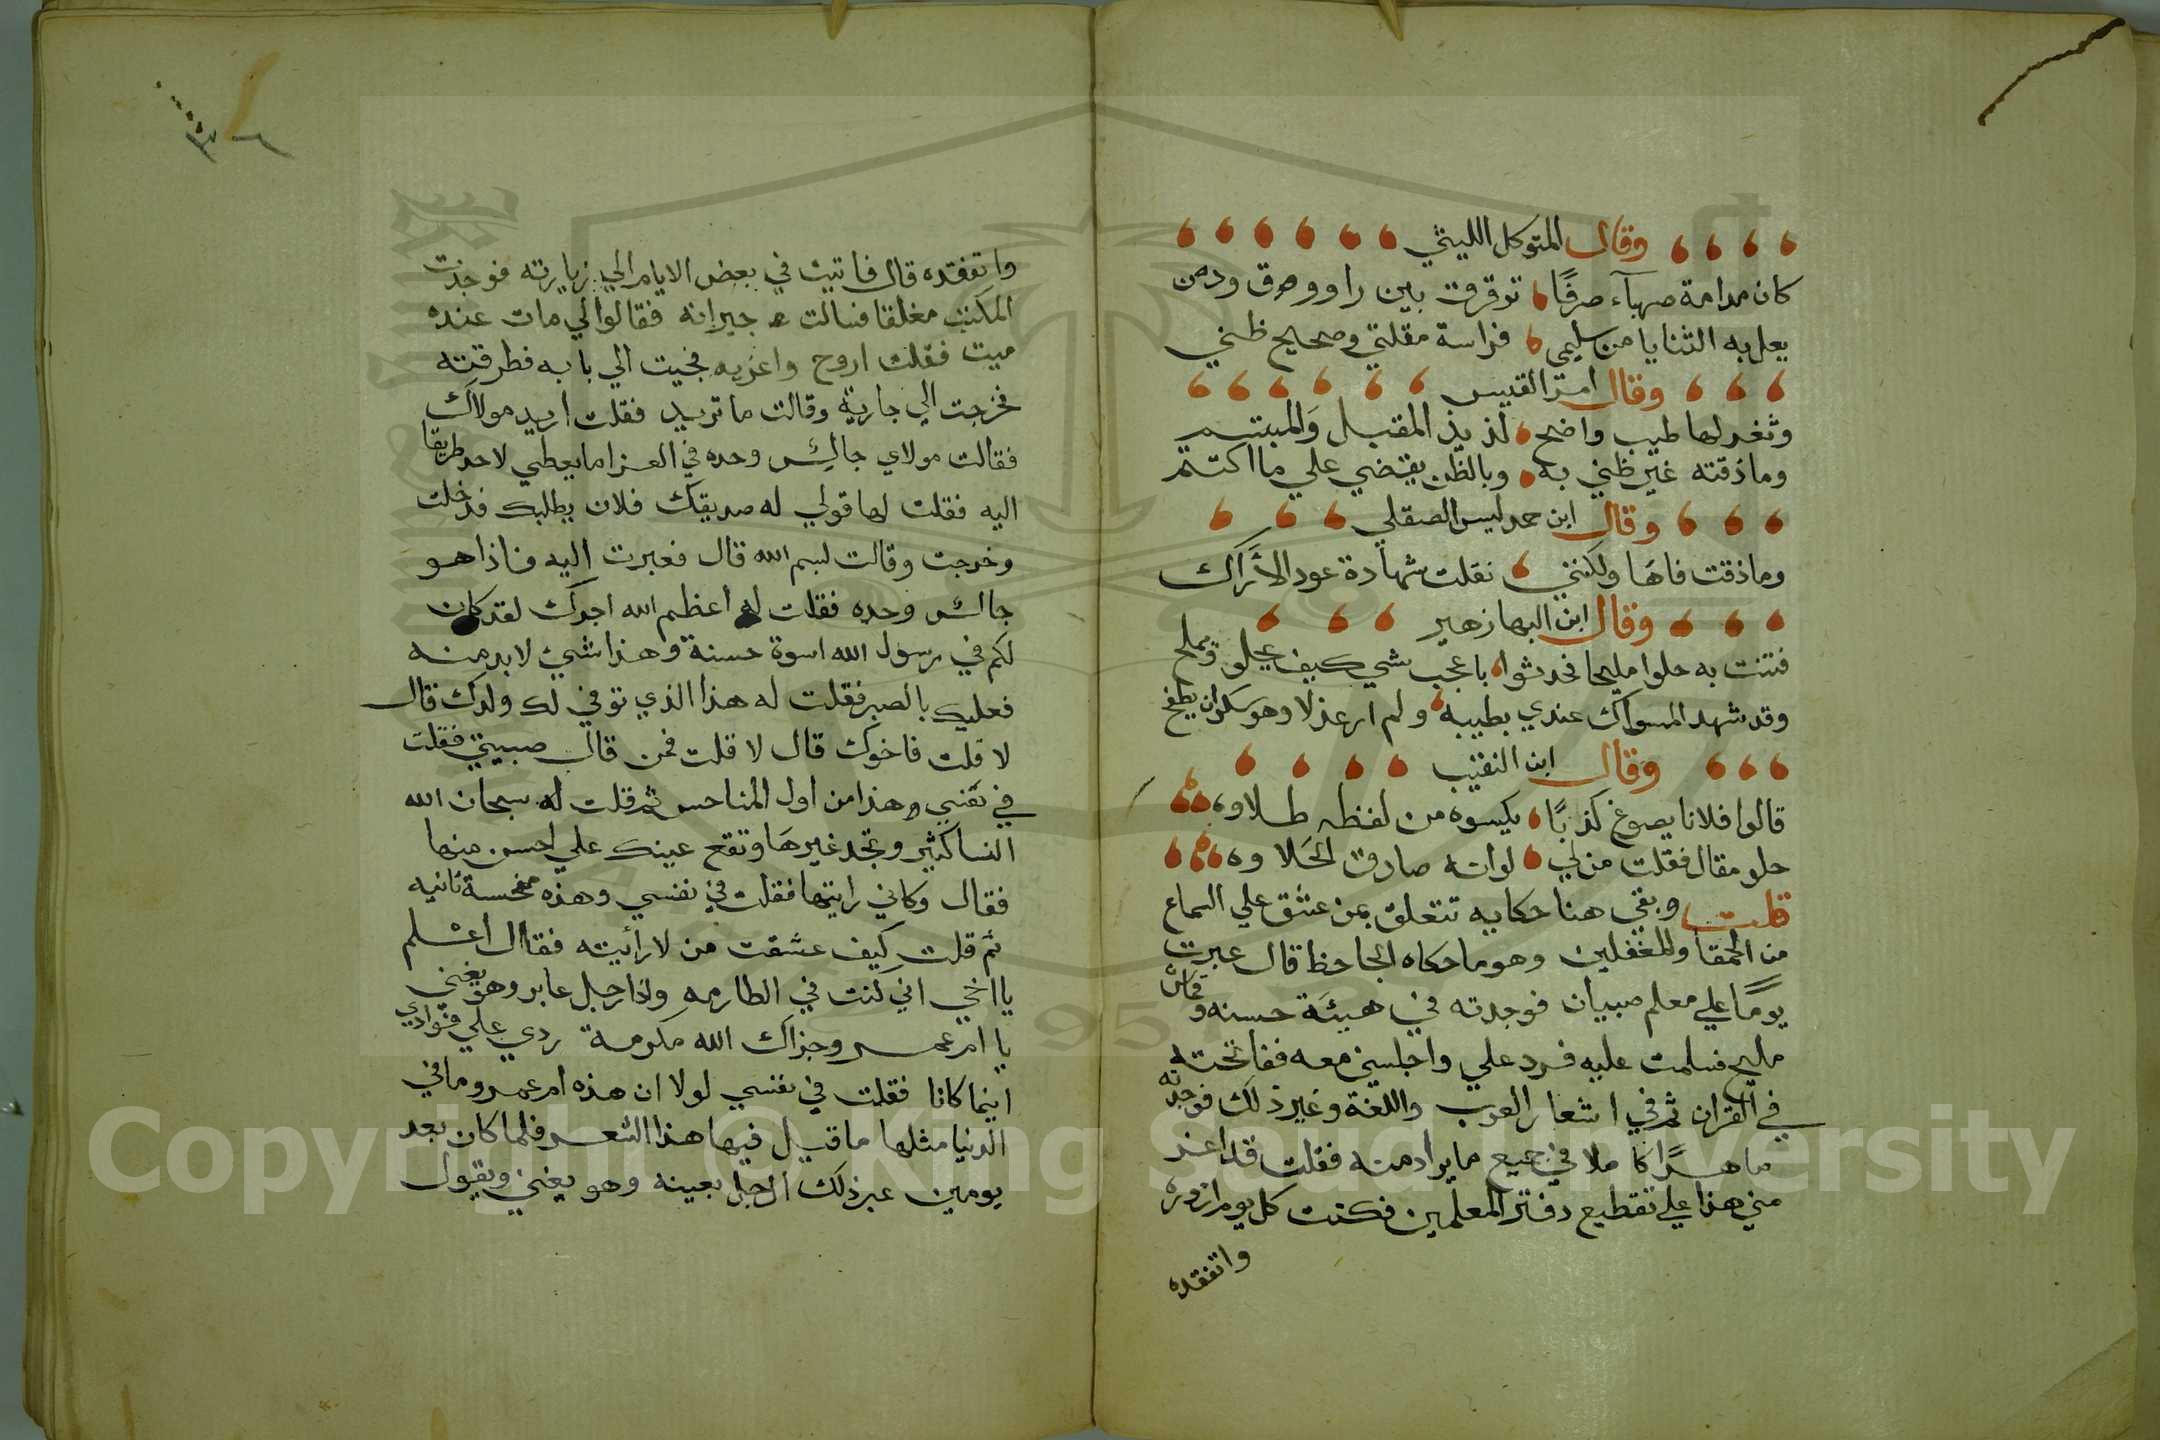 وقال المتوكل الليثي
كان مدامة صهبآء صرفًا ترقرق بين راووق ودن
يعل به الثنايا من سليمى فراسة مقلتي وصحيح ظني
وقال امرؤ القيس
وثغر لها طيب واضح لذيذ المقبل والمبتسم
وما ذقته غير ظني به وبالظن يقضي علي ما اكتتم
وقال ابن حمديس الصقلي
وما ذقت فاها ولكنني نقلت شهادة عود الأراك
وقال ابن البها زهير
فتنت به حلوا مليحا فحدثوا باعجب شي كيف يحلو ويملح
وقد شهد المسواك عندي بطيبه ولم ار عدلا وهو سكران يطفح
وقال ابن النقيب
قالوا فلانا يصوغ كذبًا يكسوه من لفظه طلاوه
حلو مقال فقلت من لي لو انه صادق الحلاوه
قلت وبقي هنا حكايه تتعلق بمن عشق علي السماع
من الحمقا والمغفلين وهو ما حكاه الجاحظ قال عبرت
يومًا علي معلم صبيان فوجدته في هيئة حسنه وقماش
مليح فسلمت عليه فرد علي واجلسني معه ففاتحته
في القران ثم في اشعار العرب واللغة وغير ذلك فوجدته
ماهرًا كاملا في جميع ما يراد منه فقلت قد اعز
مني هذا علي تقطيع دفتر المعلمين فكنت كل يوم ازوره
واتفقده
واتفقده قال فاتيت في بعض الايام الي زيارته فوجدت
المكتب مغلقا فسالت جيرانه فقالوا لي مات عنده
ميت فقلت اروح واعزيه فجيت الي بابه فطرقته
فخرجت الي جارية وقالت ما تريد فقلت اريد مولاك
فقالت مولاي جالس وحده في العزا ما يعطي لاحد طريقا
اليه فقلت لها قولي له صديقك فلان يطلبك فدخلت
وخرجت وقالت بسم الله قال فعبرت اليه فاذا هو
جالس وحده فقلت له اعظم الله اجرك لقد كان
لكم في رسول الله اسوة حسنة وهذا شيئ لا بد منه
فعليك بالصبر فقلت له هذا الذي توفي لك ولدك قال
لا قلت فاخوك قال لا قلت فمن قال صبيتي فقلت
في نفسي هذا من اول المناحس ثم قلت له سبحان الله
النسا كثير وتجد غيرها وتقع عينك علي احسن منها
فقال وكاني رايتها فقلت في نفسي وهذه منحسة ثانيه
ثم قلت كيف عشقت من لا رأيته فقال اعلم
يا اخي اني كنت في الطارمه واذا رجل عابر وهو يغني
يا ام عمرو جزاك الله مكرمة ردي علي فؤادي
اينما كانا فقلت في نفسي لولا ان هذه ام عمرو ما في
الدنيا مثلها ما قيل فيها هذا الشعر فلما كان بعد
يومين عبر ذلك الرجل بعينه وهو يغني ويقول
Copyright © King Saud University